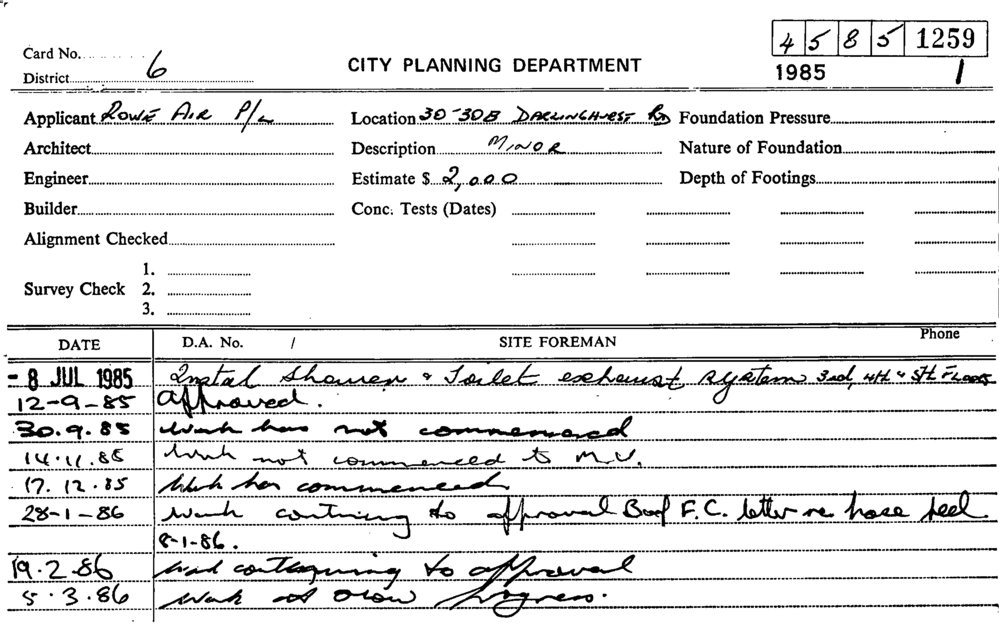 Card No.
District 6
CITY PLANNING DEPARTMENT
4 5 8 5 1259
1985 1
Applicant Rowe Air P/L Location 30-30B Darlinghurst Rd Foundation Pressure
Architect Description Minor Nature of Foundation
Engineer Estimate $ 2,000 Depth of Footings
Builder Conc. Tests (Dates)
Alignment Checked
1.
Survey Check 2.
3.
DATE D.A. No. / SITE FOREMAN Phone
- 8 JUL 1985 Instal Shower & Toilet exhaust system 3rd, 4th & 5th Floors
12-9-85 Approved.
30.9.85 Work has not commenced
14.11.85 Work not commenced to M.V.
17.12.85 Work has commenced
28-1-86 Work continuing to approval F.C. letter re hose reel
8-1-86.
19.2.86 to approval
5.3.86 Work slow progress.